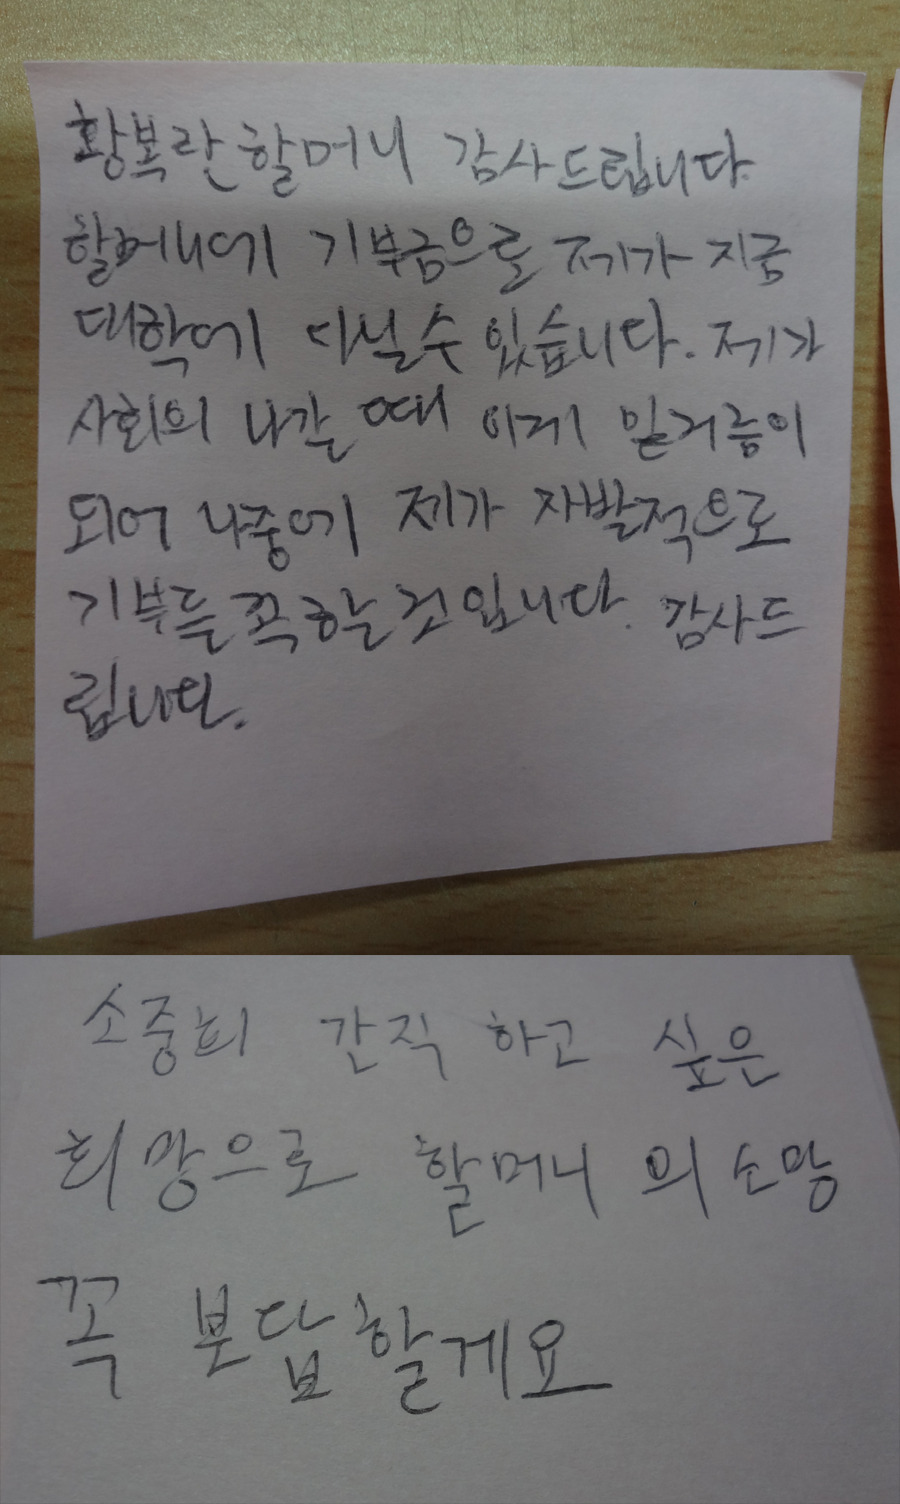 황복란할머니 감사드립니다.
할머니에 기부금으로 제가 지금
대학에 다닐수 있습니다. 제가
사회의 나갈 때 이게 밑거름이
되어 나중에 제가 자발적으로
기부를 꼭할 것입니다. 감사드
립니다.
소중히 간직 하고 싶은
희망으로 할머니 의 소망
꼭 보답할게요